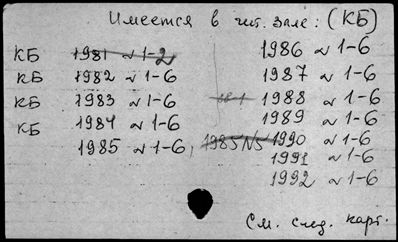 Имеется в чит. зале: (КБ)
КБ 1981 N 1-2
КБ 1982 N 1-6
КБ 1983 N 1-6
КБ 1984 N 1-6
1985 N 1-6,
1985 N5
1986 N 1-6
1987 N 1-6
88-1 1988 N 1-6
1989 N 1-6
1990 N 1-6
1991 N 1-6
1992 N 1-6
См. след. карт.